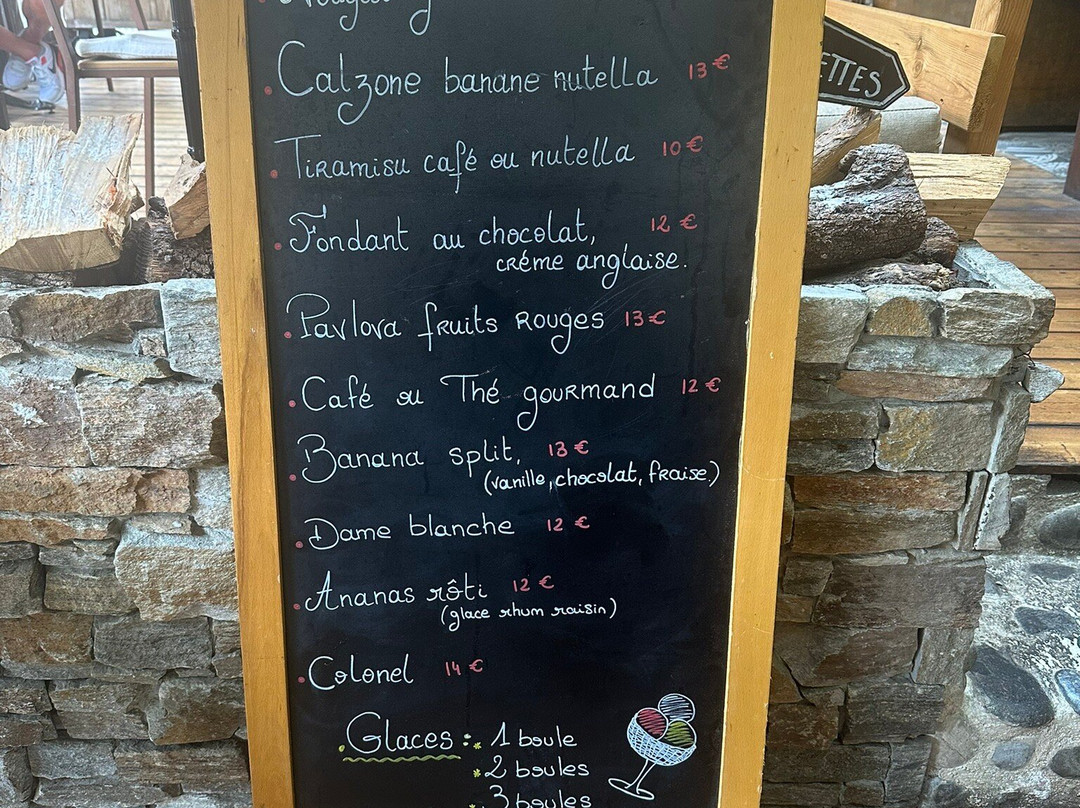 Calzone banane nutella 13€
ETTES
Tiramisu café ou nutella 10€
Fondant au chocolat, 12 €
créme anglaise.
Pavlova fruits Rouges 13€
Café ou Thé gourmand 12 €
Banana split, 13 €
(vanille, chocolat, fraise.)
Dame blanche 12 €
Ananas rôti 12 €
(glace rhum raisin)
Colonel 14 €
Glaces : * 1 boule
* 2 boules
* 3 boules